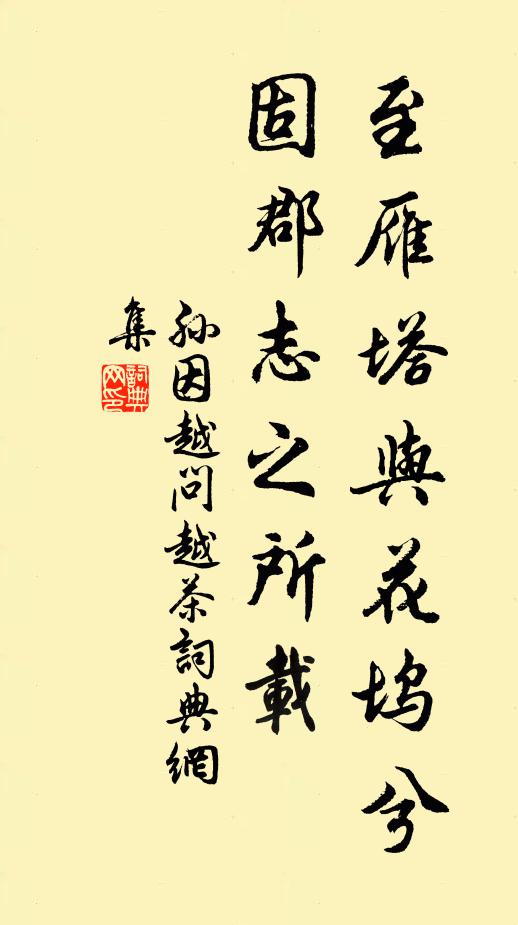 至雁塔與花塢兮
固郡志之所載
孫因越問越茶詞典網
集
詞典
网印